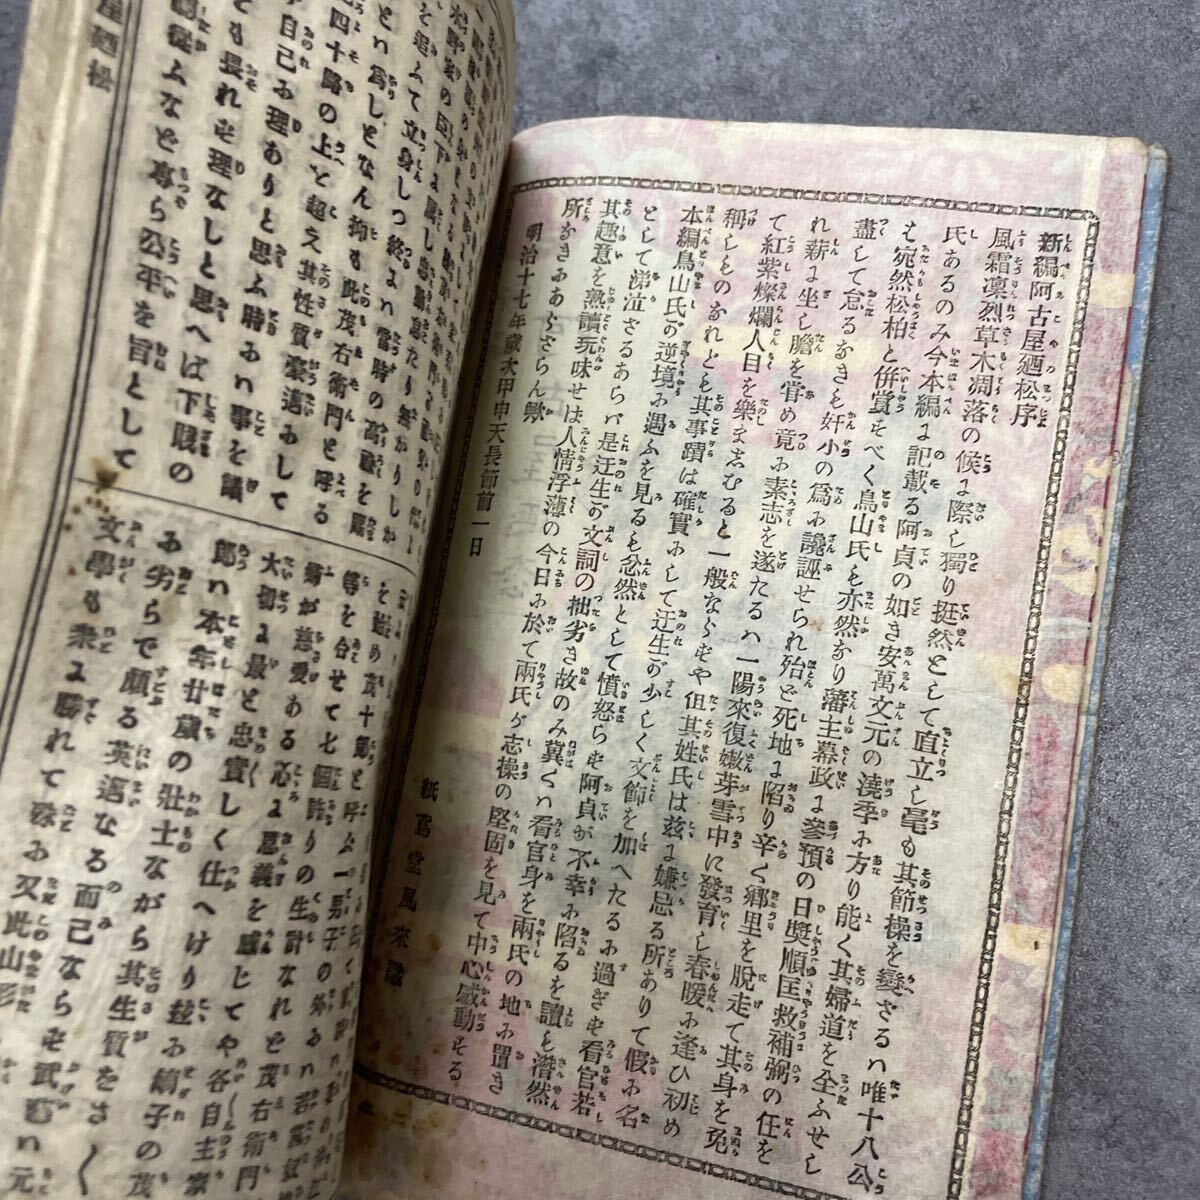 新編阿古屋廼松序
風霜凛烈草木凋落の候ょ際し獨り挺然として直立し毫も其節操を變さるハ唯十八公
氏あるのみ今本編ょ記載る阿貞の如き安萬文元の澆季ふ方り能く其婦道を全ふせし
む宛然松柏と併賞をべく鳥山氏も亦然なり藩主幕政ょ參預の日奬順匡救補弼の任を
盡して怠るなきも奸小の爲ふ讒誣せられ殆ど死地ょ陷り辛く郷里を脱走て其身を免
れ薪ょ坐し膽を甞め竟ふ素志を遂たるハ一陽來復嫩芽雪中に發育し春暖ふ逢ひ初め
て紅紫燦爛人目を樂ましむると一般ならずや但其姓氏は玆ょ嫌忌る所ありて假ふ名
稱しものなれども其事蹟は確實ふして迂生が少しく文飾を加へたるふ過ぎず看官若
本編鳥山氏が逆境ふ遇ふを見るも忿然として憤怒らず阿貞が不幸ふ陷るを讀も潸然
として涕泣ざるあらバ是迂生の文詞の拙劣き故のみ冀くハ看官身を兩氏の地ふ置き
其趣意を熟讀玩味せは人情浮薄の今日ふ於て兩氏が志操の堅固を見て中心感動する
所なきふあらざらん歟
明治十七年歳次甲申天長節前一日
紙鳶堂風來識
屋廼松
水野家の臣下ょ属し忠勤怠たり無かりしか
を追ふて立身しつ終ょハ當時の高祿を賜
とハ爲しとなん抑も此茂右衛門と呼る
四十路の上と超え其性質豪邁ふして
自己ふ理ありと思ふ時ふハ事を議
も畏れず理なしと思へば下賤の
從ふなど專ら公平を旨として
を始め茂十郎と呼ふ一男子の外ふ
等を合せて七個許りの生計なれど茂右衛門
爾が慈愛ある心ょ恩義を感じてや各自主家
大切ょ最と忠實しく仕へけり玆ふ嫡子の茂
郎ハ本年廿歳の壯士ながら其生質をさ〱
ふ劣らで頗る英邁なる而已ならず武藝ハ元
文學も衆ょ勝れて殊ふ又此山形